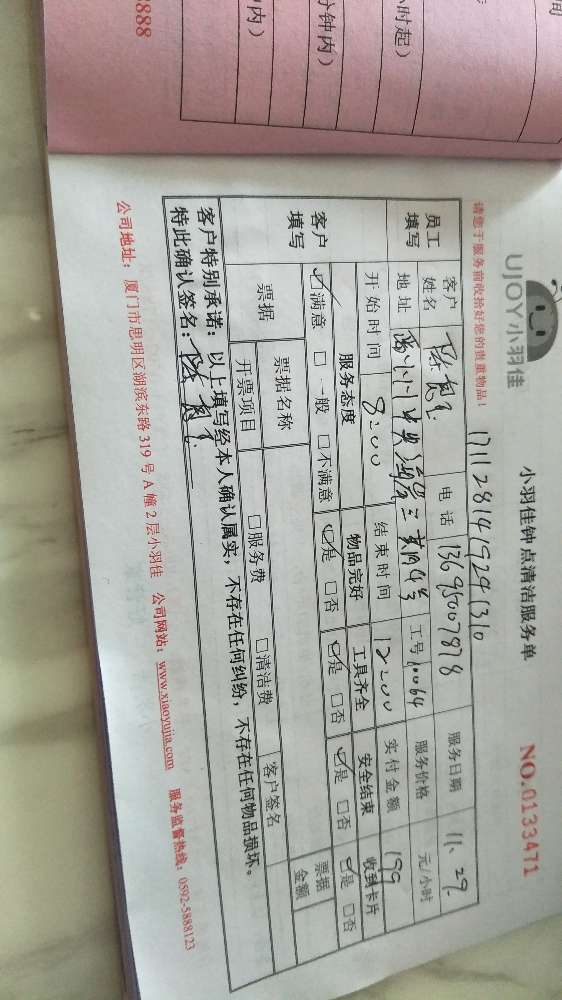 UJOY小羽佳
小羽佳钟点清洁服务单
NO.0133471
请您于服务前收拾好您的贵重物品！
17112814192941310
员工填写
客户姓名
电话 13695007878
服务日期 11.29
地址
工号 10064
服务价格 元/小时
开始时间 8:00
结束时间 12:00
实付金额 199
客户填写
服务态度 物品完好 工具齐全 安全结束 收到卡片
☑满意 □一般 □不满意 ☑是 □否 ☑是 □否 ☑是 □否 ☑是 □否
票据
票据名称
客户签名
票据金额
开票项目 □服务费 □清洁费
客户特别承诺：以上填写经本人确认属实，不存在任何纠纷，不存在任何物品损坏。
特此确认签名：
公司地址：厦门市思明区湖滨东路319号A幢2层小羽佳 公司网站：www.xiaoyujia.com 服务监督热线：0592-5888123
时起）
分钟内）
内）
8888